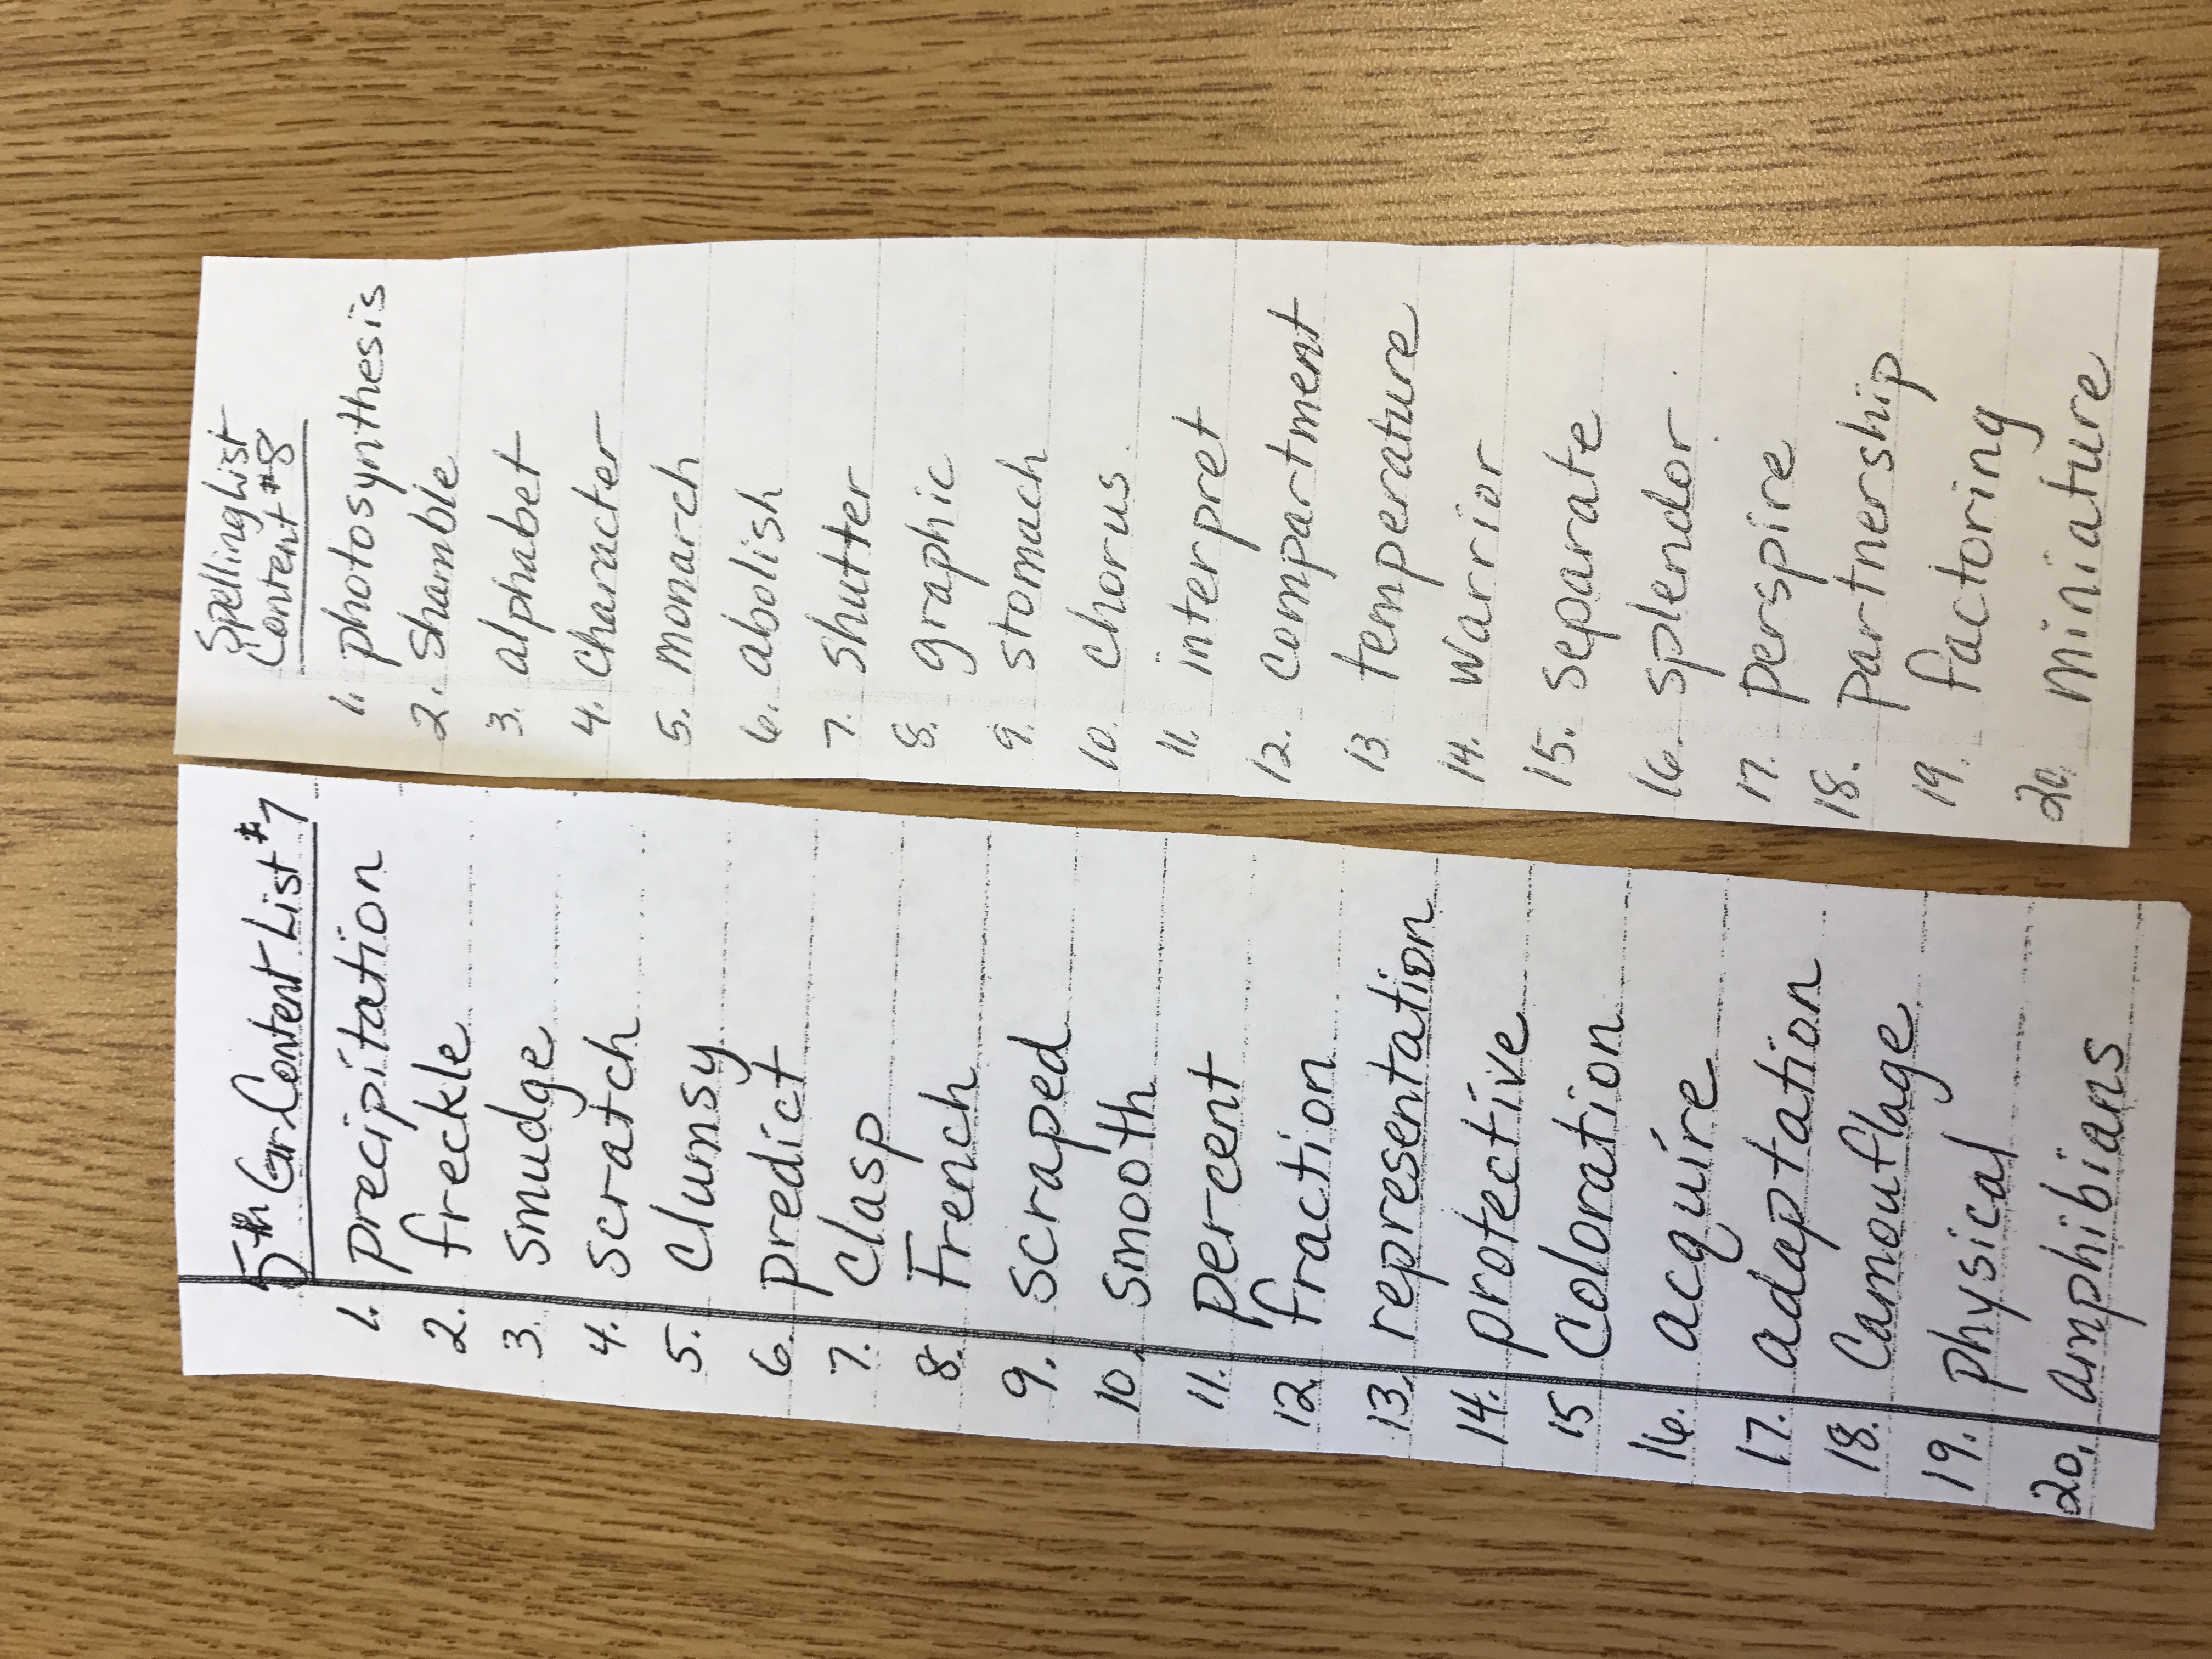 5th Gr. Content List #7
1. precipitation
2. freckle
3. smudge
4. scratch
5. clumsy
6. predict
7. clasp
8. French
9. scraped
10. smooth
11. percent
12. fraction
13. representation
14. protective
15 Coloration
16. acquire
17. adaptation
18. Camouflage
19. physical
20. amphibians
Spelling List
Content #8
1. photosynthesis
2. shamble
3. alphabet
4. character
5. monarch
6. abolish
7. shutter
8. graphic
9. stomach
10. chorus
11. interpret
12. compartment
13 temperature
14. warrior
15. separate
16. splendor
17. perspire
18. partnership
19. factoring
20. miniature